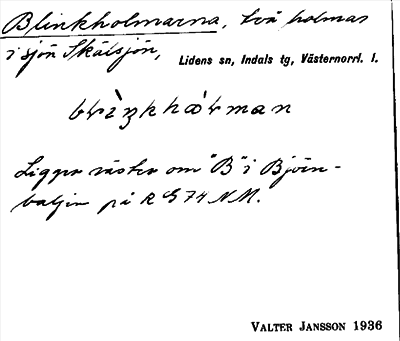 Blinkholmarna, två holmar
i sjön Skälsjön,
Lidens sn, Indals tg, Västernorrl. l.
Ligger väster om "B" i Björn-
på R G74 NM.
VALTER JANSSON 1936